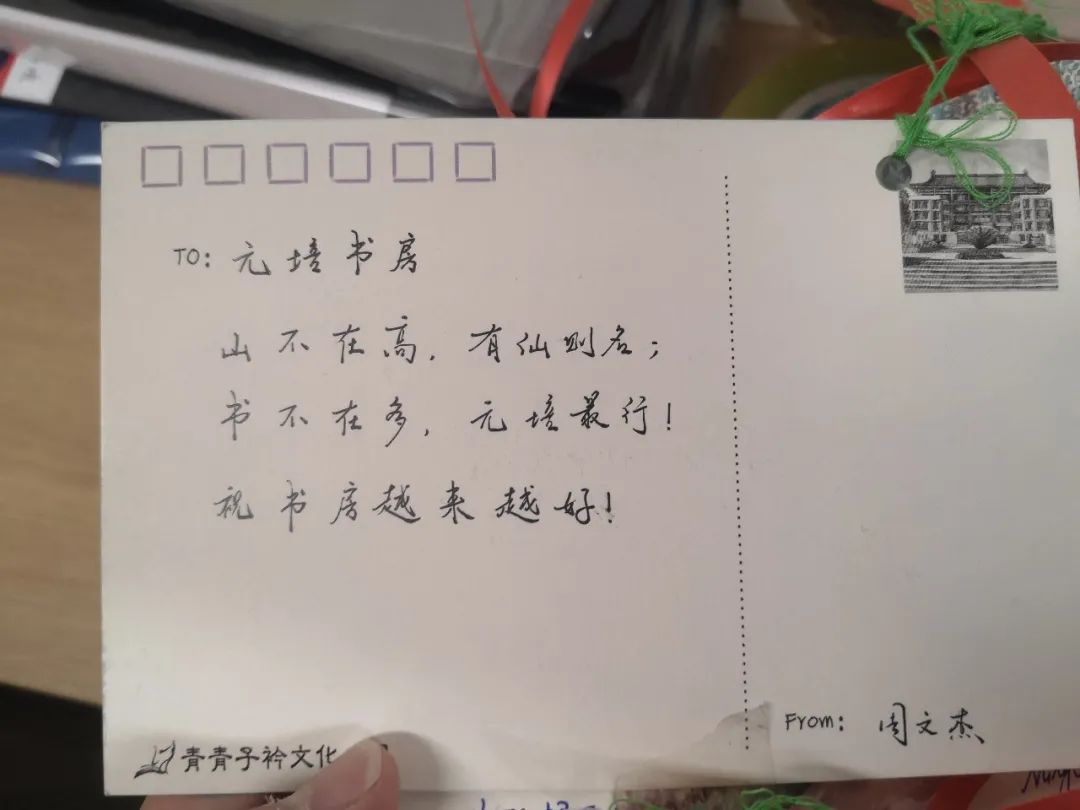 TO: 元培书房
山不在高，有仙则名；
书不在多，元培最行！
祝书房越来越好！
From: 周文杰
青青子衿文化